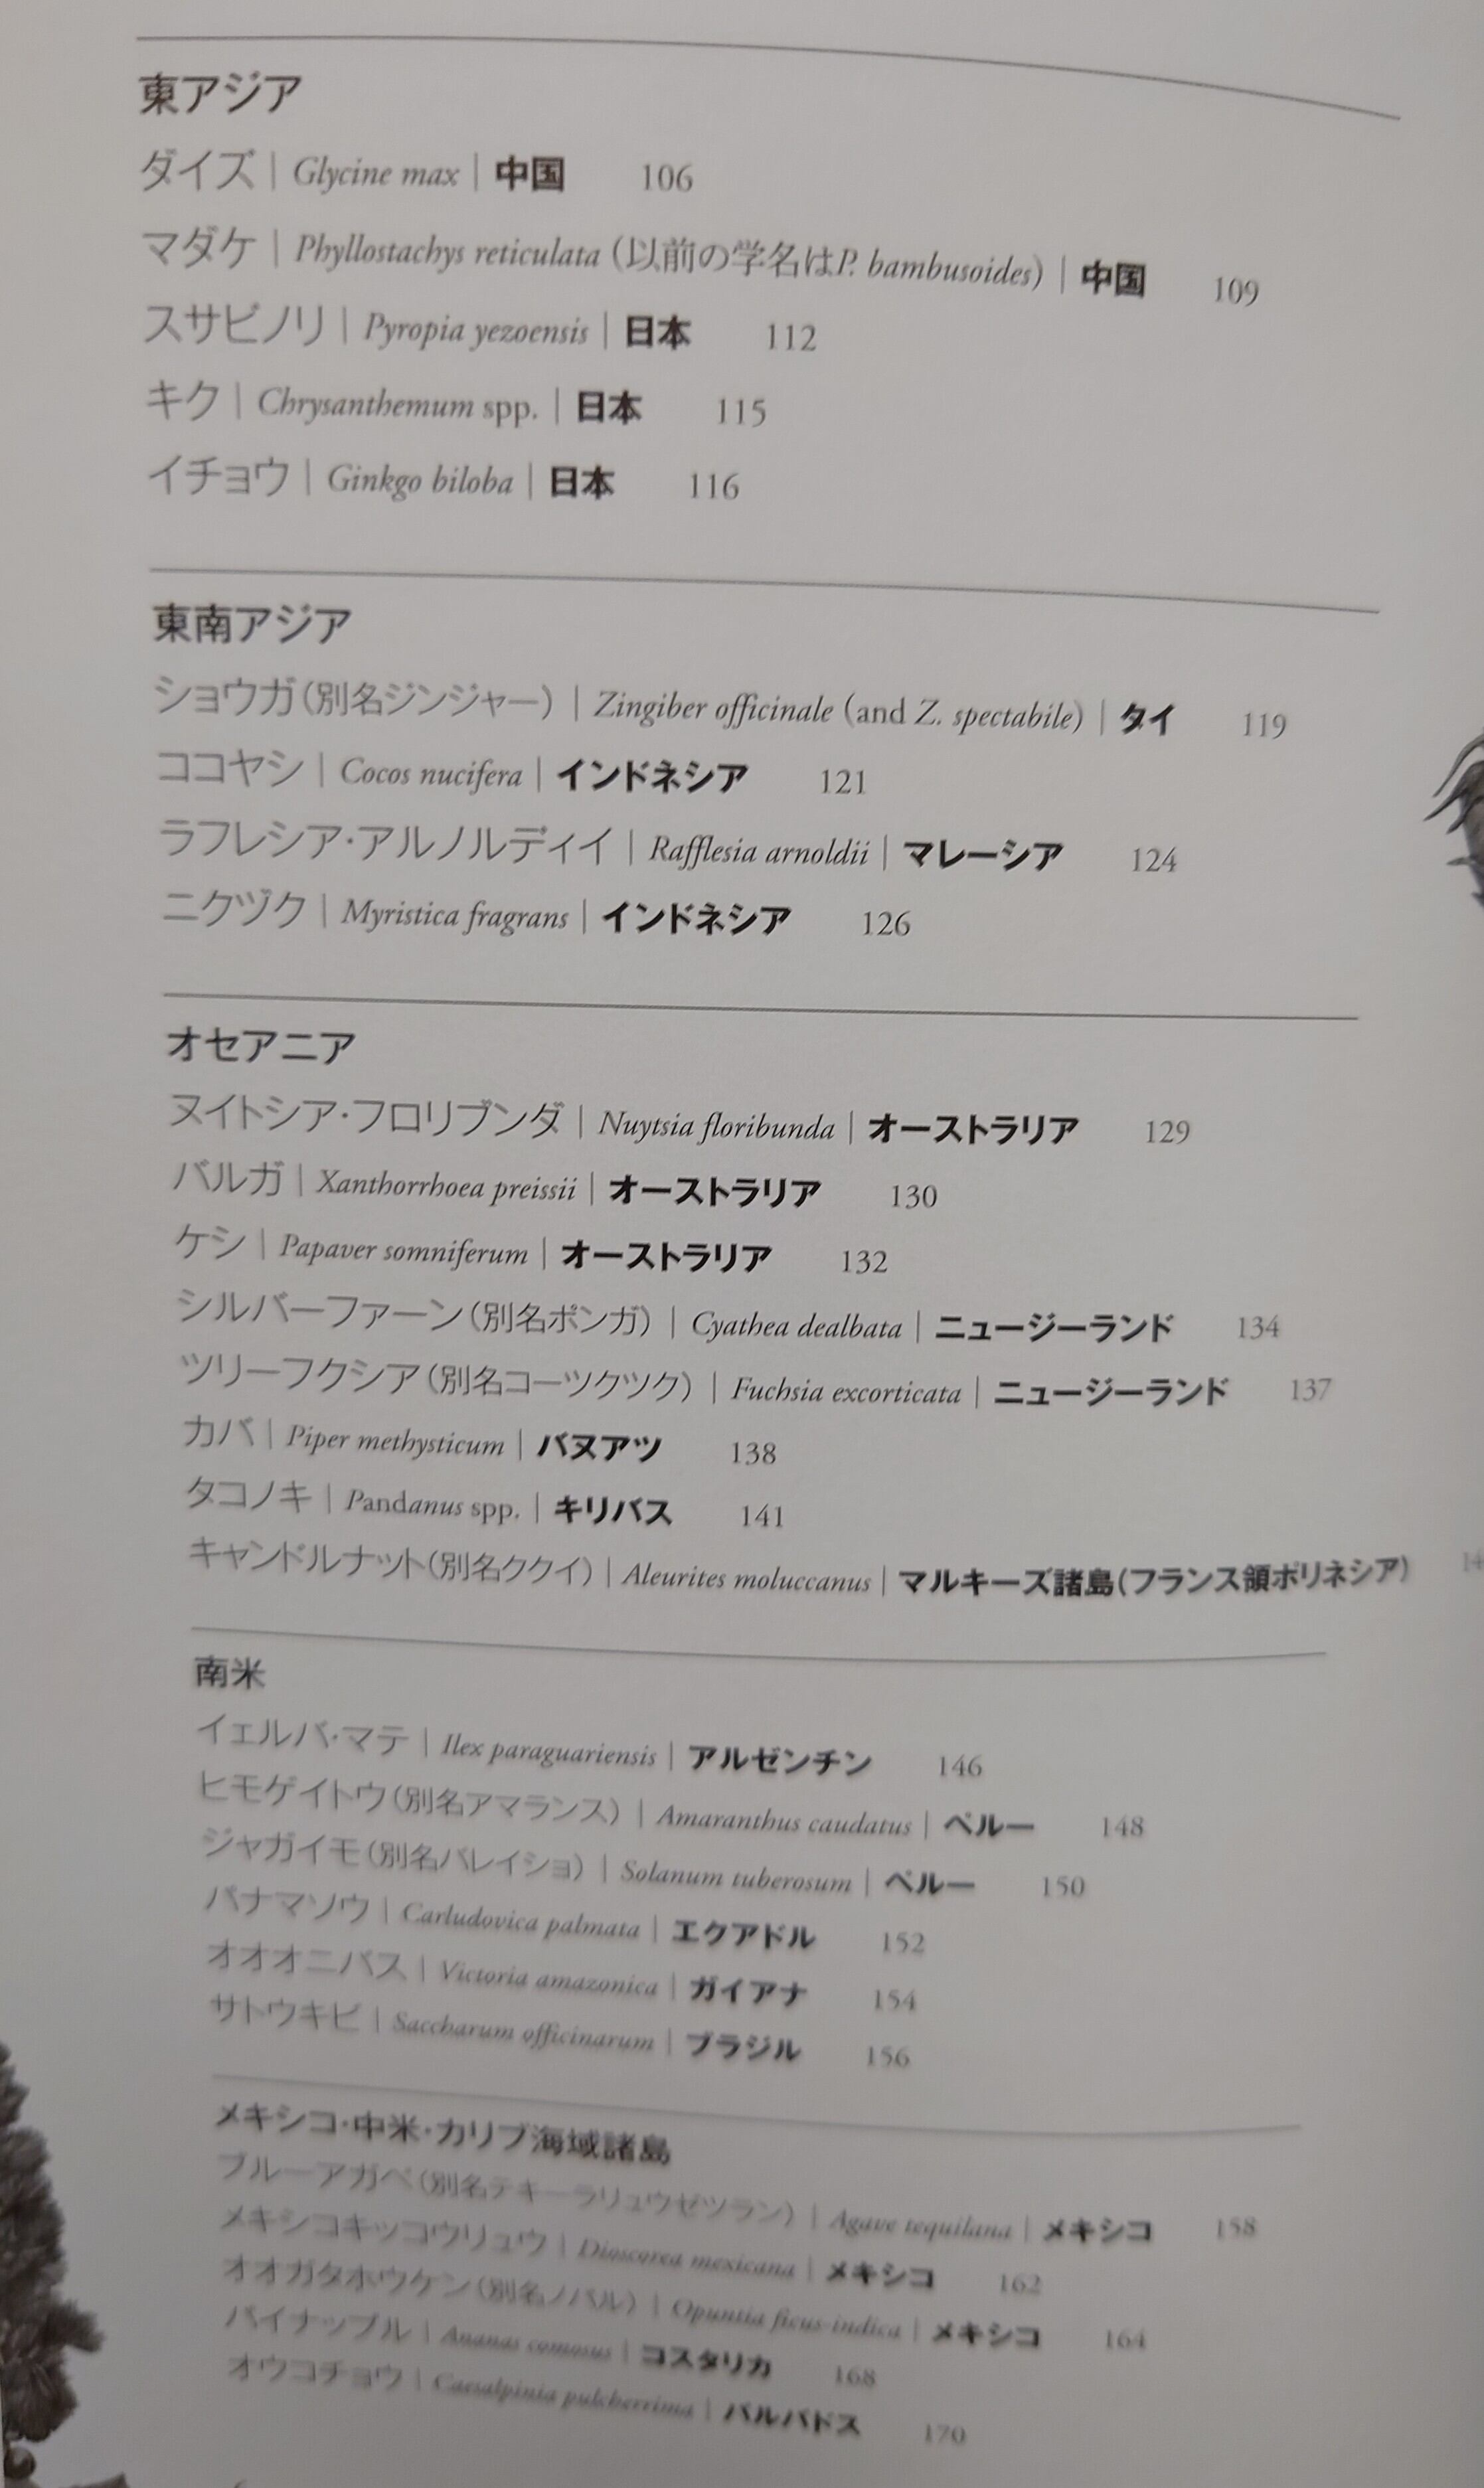 東アジア
ダイズ | Glycine max | 中国 106
マダケ | Phyllostachys reticulata (以前の学名はP. bambusoides) | 中国 109
スサビノリ | Pyropia yezoensis | 日本 112
キク | Chrysanthemum spp. | 日本 115
イチョウ | Ginkgo biloba | 日本 116
東南アジア
ショウガ(別名ジンジャー) | Zingiber officinale (and Z. spectabile) | タイ 119
ココヤシ | Cocos nucifera | インドネシア 121
ラフレシア・アルノルディイ | Rafflesia arnoldii | マレーシア 124
ニクヅク | Myristica fragrans | インドネシア 126
オセアニア
ヌイトシア・フロリブンダ | Nuytsia floribunda | オーストラリア 129
バルガ | Xanthorrhoea preissii | オーストラリア 130
ケシ | Papaver somniferum | オーストラリア 132
シルバーファーン(別名ポンガ) | Cyathea dealbata | ニュージーランド 134
ツリーフクシア(別名コーツクツク) | Fuchsia excorticata | ニュージーランド 137
カバ | Piper methysticum | バヌアツ 138
タコノキ | Pandanus spp. | キリバス 141
キャンドルナット(別名ククイ) | Aleurites moluccanus | マルキーズ諸島(フランス領ポリネシア)
南米
イェルバ・マテ | Ilex paraguariensis | アルゼンチン 146
ヒモゲイトウ(別名アマランス) | Amaranthus caudatus | ペルー 148
ジャガイモ(別名バレイショ) | Solanum tuberosum | ペルー 150
パナマソウ | Carludovica palmata | エクアドル 152
オオオニバス | Victoria amazonica | ガイアナ 154
サトウキビ | Saccharum officinarum | ブラジル 156
メキシコ・中米・カリブ海域諸島
ブルーアガベ(別名テキーラリュウゼツラン) | Agave tequilana | メキシコ 158
メキシコキッコウリュウ | Dioscorea mexicana | メキシコ 162
オオガタホウケン(別名ノパル) | Opuntia ficus-indica | メキシコ 164
パイナップル | Ananas comosus | コスタリカ 168
オウコチョウ | Caesalpinia pulcherrima | バルバドス 170